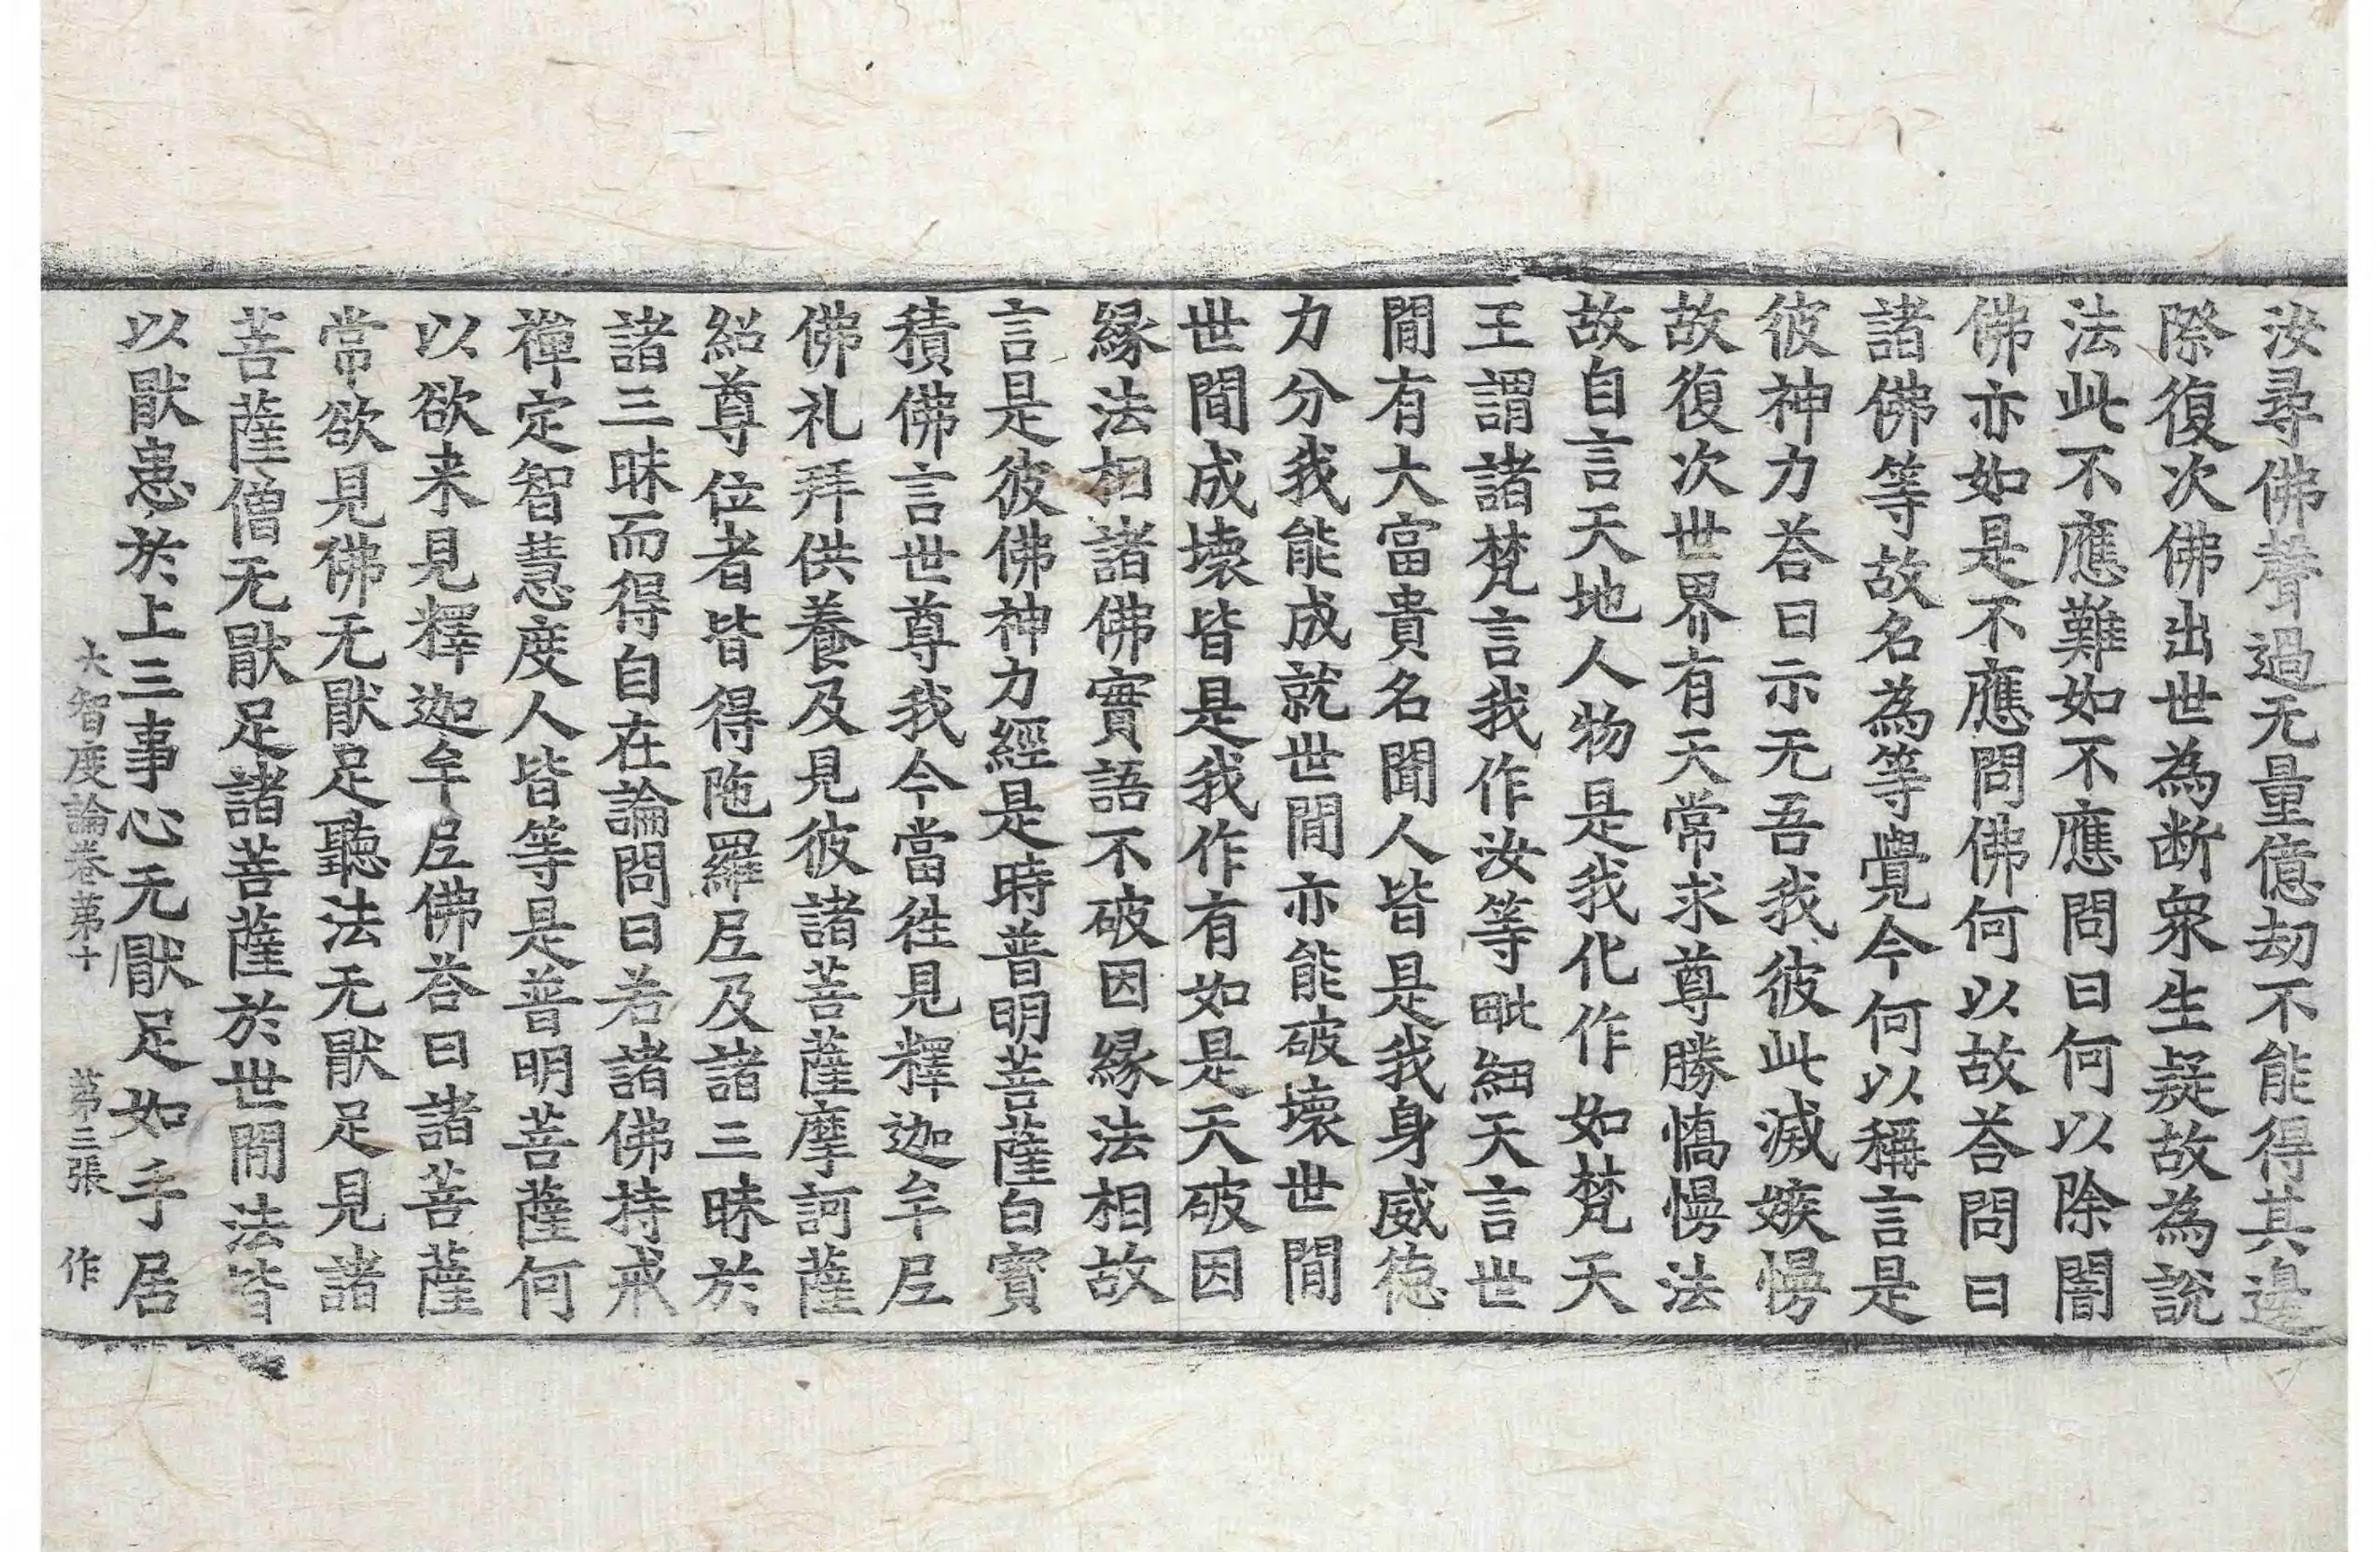 汝尋佛聲過无量億劫不能得其邊
際復次佛出世為断衆生疑故為說
法此不應難如不應問日何以除闇
佛亦如是不應問佛何以故荅問曰
諸佛等故名為等覺今何以稱言是
彼神力荅曰示无吾我彼此滅嫉慢
故復次世界有天常求尊勝憍慢法
故自言天地人物是我化作如梵天
王謂諸梵言我作汝等毗紐天言世
間有大富貴名聞人皆是我身威徳
力分我能成就世間亦能破壞世間
世間成壞皆是我作有如是天破因
縁法相諸佛實語不破因縁法相故
言是彼佛神力經是時普明菩薩白寶
積佛言世尊我今當往見釋迦牟尼
佛礼拜供養及見彼諸菩薩摩訶薩
紹尊位者皆得陁羅尼及諸三昧於
諸三昧而得自在論問曰若諸佛持戒
禪定智慧度人皆等是普明菩薩何
以欲来見釋迦牟尼佛荅曰諸菩薩
常欲見佛无猒足聽法无猒足見諸
菩薩僧无猒足諸菩薩於世間法皆
以猒患於上三事心无猒足如手居
大智度論卷第十 第三張 作